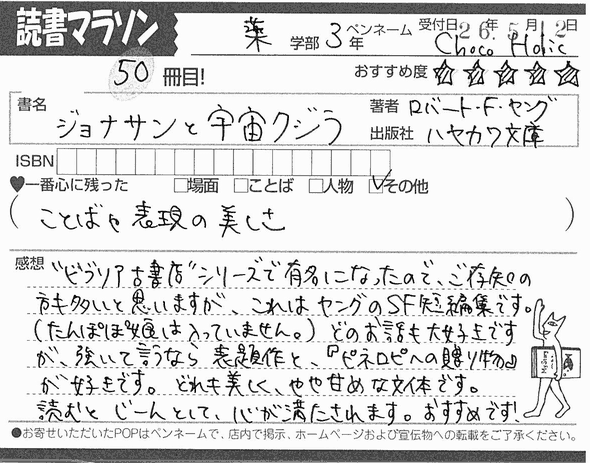 読書マラソン
薬 学部 3年 ペンネーム Choco Holic 受付日 26年 5月 2日
50 冊目! おすすめ度 ☆☆☆☆☆
書名 ジョナサンと宇宙クジラ
著者 ロバート・F・ヤング
出版社 ハヤカワ文庫
ISBN
♥一番心に残った □場面 □ことば □人物 ☑その他
(ことばや表現の美しさ)
感想 "ビブリア古書店"シリーズで有名になったので、ご存知の
方も多いと思いますが、これはヤングのSF短編集です。
(たんぽぽ娘は入っていません。) どのお話も大好きです
が、強いて言うなら 表題作と、『ピネロピへの贈り物』
が好きです。どれも美しく、やや甘めな文体です。
読むと じーんとして、心が満たされます。おすすめです!
●お寄せいただいたPOPはペンネームで、店内で掲示、ホームページおよび宣伝物への転載をご了承ください。